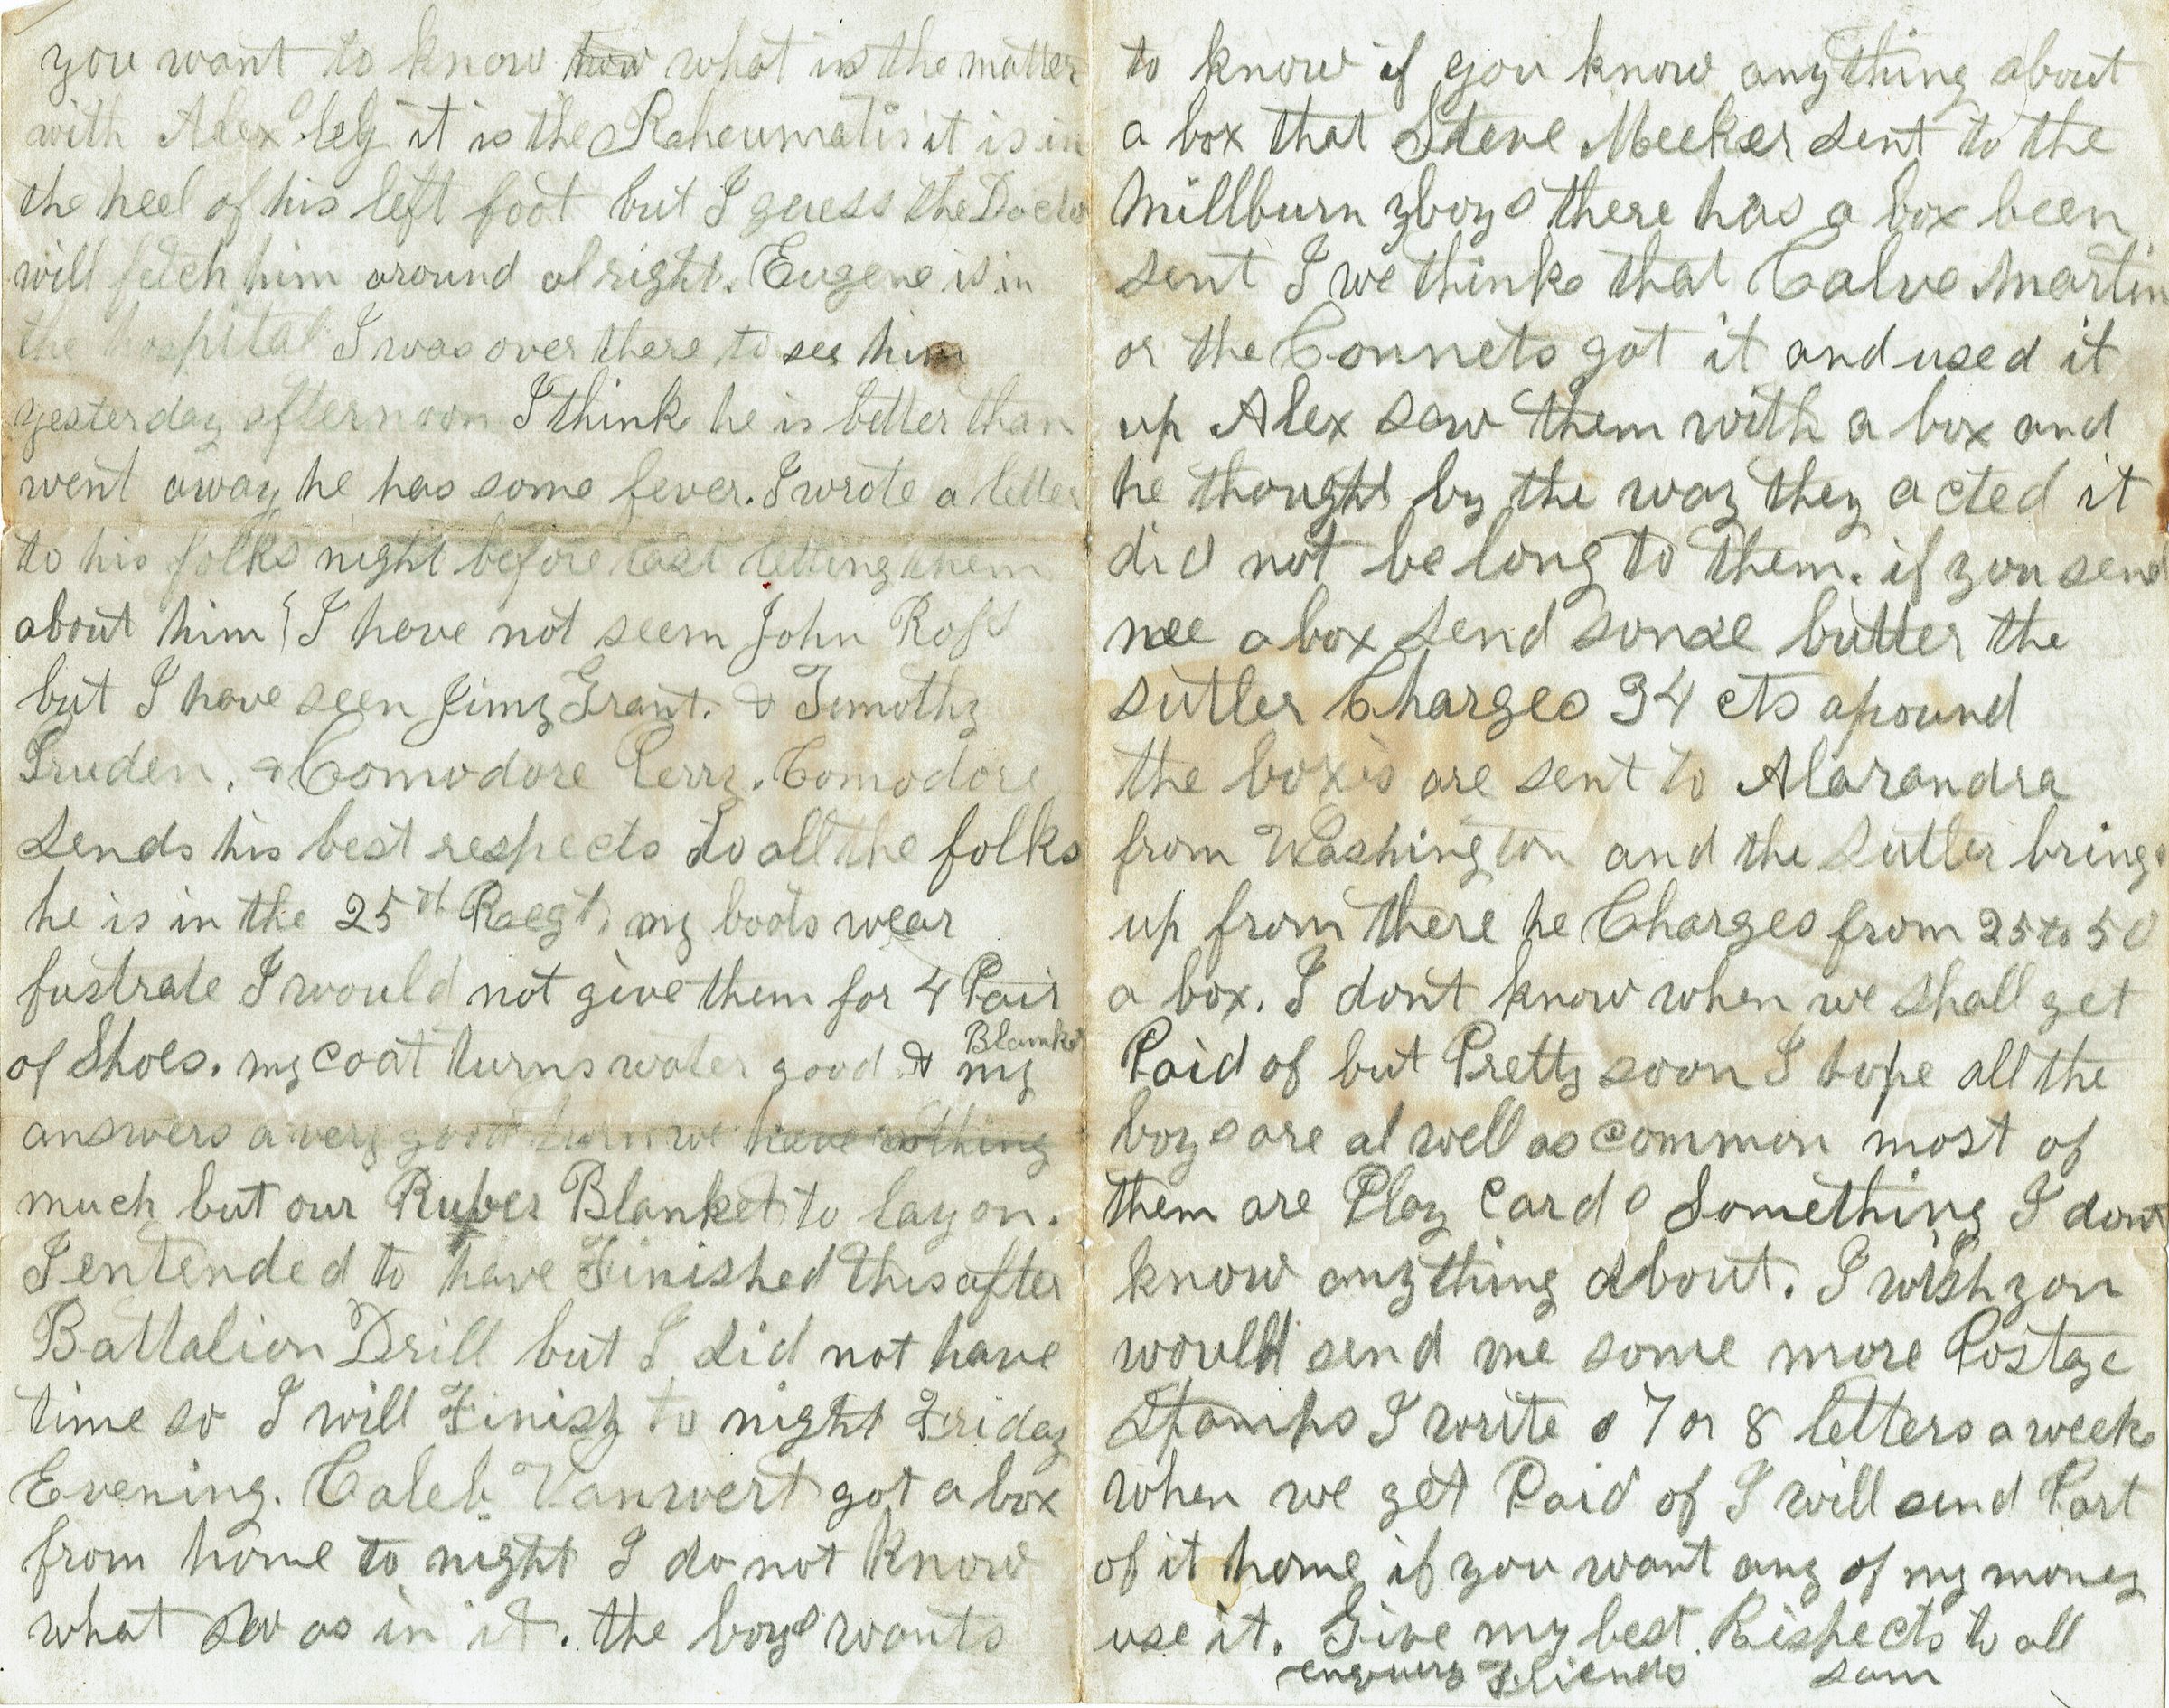 you want to know how what is the matter
with Alex leg it is the Raheumatis it is in
the heel of his left foot but I guess the Docto
will fetch him around alright. Eugene is in
the hospital I was over there to see him
yesterday afternoon I think he is better than
went away he has some fever. I wrote a letter
to his folks night before last letting them
about him I have not seem John Ross
but I have seen Jimy Grant. & Timothy
Pruden. & Comodore Perry. Comodore
sends his best respects to all the folks
he is in the 25th Raegt, my boots wear
fustrate I would not give them for 4 Pair
of Shoes. my coat turns water good & my Blanket
answers a very good turn we have nothing
much but our Ruber Blanket to lay on.
I entended to have Finished this after
Battalion Drill but I did not have
time so I will Finish to night Friday
Evening. Caleb Vanwert got a box
from home to night I do not Know
what was in it. the boys wants
to know if you know anything about
a box that Steve Meeker sent to the
Millburn boys there has a box been
sent I we think that Calve Martin
or the Connets got it and used it
up Alex saw them with a box and
he thought by the way they acted it
did not belong to them. if you send
mee a box send some butter the
sutler Charges 34 cts a pound
the boxis are sent to Alaxandra
from Washington and the sutler brings
up from there he Charges from 25 to 50
a box. I dont know when we shall get
Paid of but Pretty soon I hope all the
boys are al well as common most of
them are Play Cards Something I dont
know anything about. I wish you
would send me some more Postage
Stamps I write 7 or 8 letters a week
when we get Paid of I will send Part
of it home if you want any of my money
use it. Give my best Rispects to all
enquiery Friends Sam